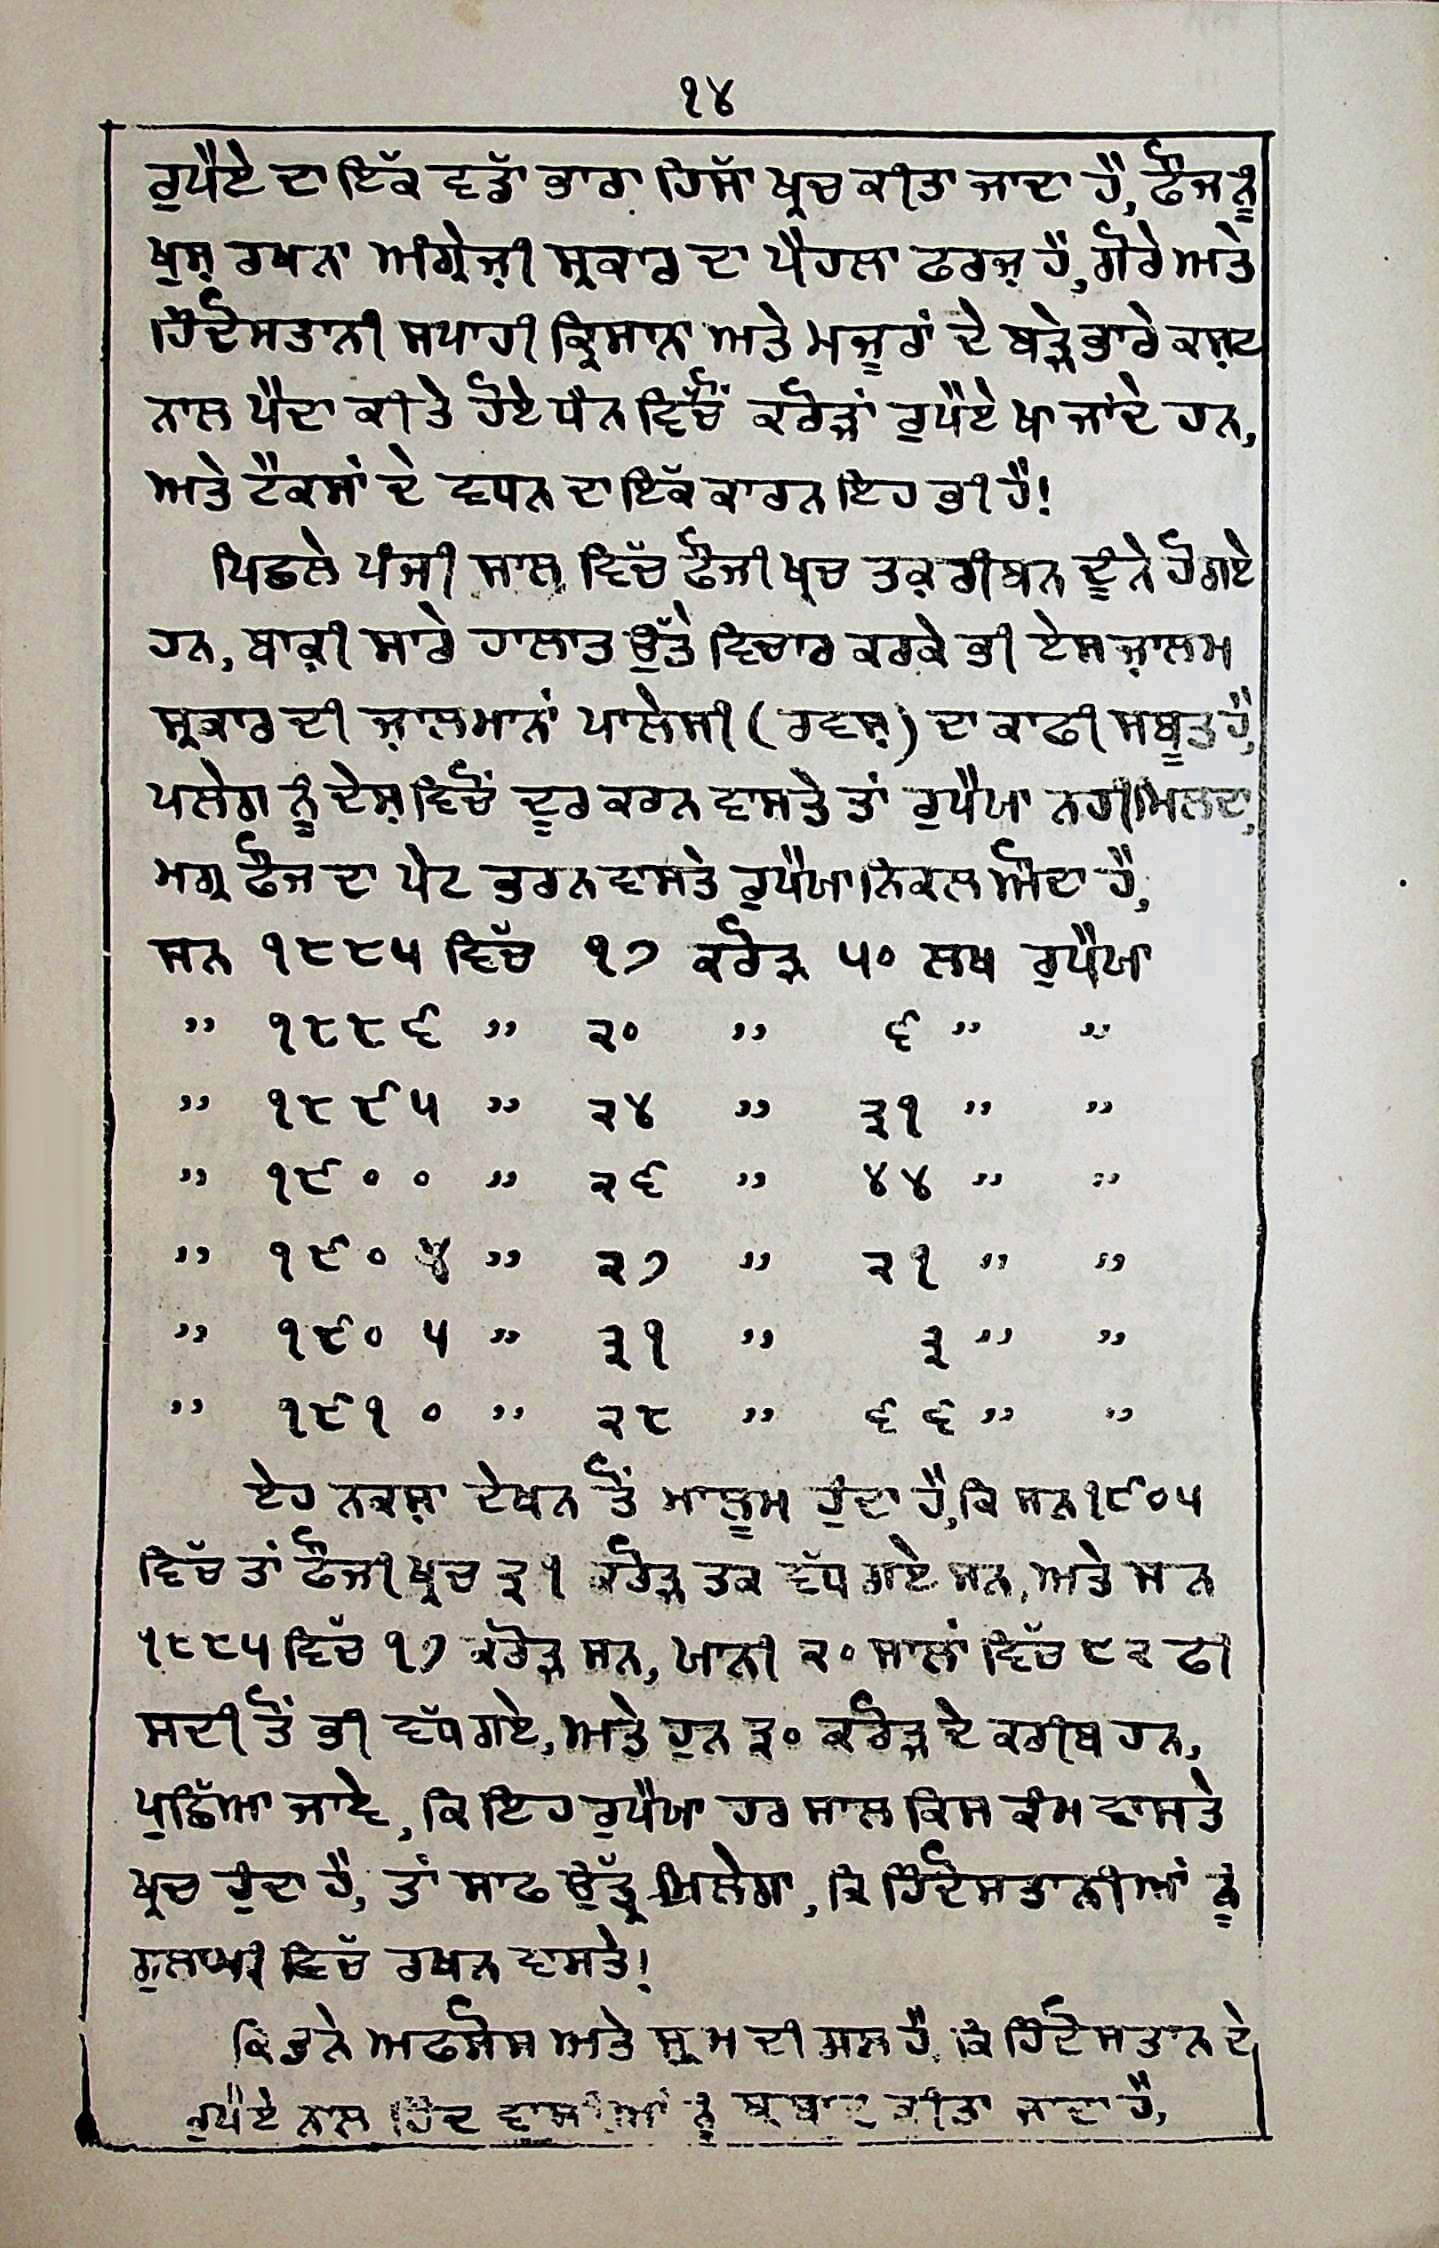 ੧੪
ਰੁਪੈਏ ਦਾ ਇੱਕ ਵਡਾ ਭਾਰਾ ਹਿਸਾ ਖ੍ਰਚ ਕੀਤਾ ਜਾਦਾ ਹੈ, ਫੌਜ ਨੂੰ
ਖੁਸ਼ ਰਖਨਾ ਅੰਗ੍ਰੇਜ਼ੀ ਸ੍ਰਕਾਰ ਦਾ ਪੈਹਲਾ ਫਰਜ਼ ਹੈ, ਗੋਰੇ ਅਤੇ
ਹਿੰਦੋਸਤਾਨੀ ਸਪਾਹੀ ਕ੍ਰਿਸਾਨਾਂ ਅਤੇ ਮਜ਼ੂਰਾਂ ਦੇ ਬੜੇ ਭਾਰੇ ਕਸ਼ਟ
ਨਾਲ ਪੈਦਾ ਕੀਤੇ ਹੋਏ ਧੰਨ ਵਿੱਚੋਂ ਕਰੋੜਾਂ ਰੁਪੈਏ ਖਾ ਜਾਂਦੇ ਹਨ,
ਅਤੇ ਟੈਕਸਾਂ ਦੇ ਵਧਨ ਦਾ ਇੱਕ ਕਾਰਨ ਇਹ ਭੀ ਹੈ!
ਪਿਛਲੇ ਪੰਜੀ ਸਾਲ ਵਿੱਚ ਫੌਜੀ ਖ੍ਰਚ ਤਕ਼ਰੀਬਨ ਦੂੰਨੇ ਹੋਗਏ
ਹਨ, ਬਾਕ਼ੀ ਸਾਰੇ ਹਾਲਾਤ ਉੱਤੇ ਵਿਚਾਰ ਕਰਕੇ ਭੀ ਏਸ ਜ਼ਾਲਮ
ਸ੍ਰਕਾਰ ਦੀ ਜ਼ਾਲਮਾਨਾਂ ਪਾਲੇਸੀ (ਰਵਸ਼) ਦਾ ਕਾਫੀ ਸਬੂਤ ਹੈ,
ਪਲੇਗ ਨੂੰ ਦੇਸ਼ ਵਿੱਚੋਂ ਦੂਰ ਕਰਨ ਵਾਸਤੇ ਤਾਂ ਰੁਪੈਯਾ ਨਹੀਂ ਮਿਲਦਾ,
ਮਗ੍ਰ ਫੌਜ ਦਾ ਪੇਟ ਭਰਨ ਵਾਸਤੇ ਰੁਪੈਯਾ ਨਿਕਲ ਔਂਦਾ ਹੈ,
ਸਨ ੧੮੮੫ ਵਿੱਚ ੧੭ ਕਰੋੜ ੫੦ ਲਖ ਰੁਪੈਯਾ
” ੧੮੮੬ ” ੨੦ ” ੬ ” ”
” ੧੮੯੫ ” ੨੪ ” ੩੧ ” ”
” ੧੯੦੦ ” ੨੬ ” ੪੪ ” ”
” ੧੯੦੪ ” ੨੭ ” ੨੧ ” ”
” ੧੯੦੫ ” ੩੧ ” ੩ ” ”
” ੧੯੧੦ ” ੨੮ ” ੬੬ ” ”
ਏਹ ਨਕਸ਼ਾ ਦੇਖਨ ਤੋਂ ਮਾਲੂਮ ਹੁੰਦਾ ਹੈ, ਕਿ ਸਨ ੧੯੦੫
ਵਿੱਚ ਤਾਂ ਫੌਜੀ ਖ੍ਰਚ ੩੧ ਕਰੋੜ ਤਕ ਵੱਧ ਗਏ ਸਨ, ਅਤੇ ਸਨ
੧੮੮੫ ਵਿੱਚ ੧੭ ਕਰੋੜ ਸਨ, ਯਾਨੀ ੨੦ ਸਾਲਾਂ ਵਿੱਚ ੮੨ ਫੀ
ਸਦੀ ਤੋਂ ਭੀ ਵੱਧ ਗਏ, ਅਤੇ ਹੁਨ ੩੦ ਕਰੋੜ ਦੇ ਕਰੀਬ ਹਨ,
ਪੁਛਿੱਆ ਜਾਵੇ, ਕਿ ਇਹ ਰੁਪੈਯਾ ਹਰ ਸਾਲ ਕਿਸ ਕੰਮ ਵਾਸਤੇ
ਖ੍ਰਚ ਹੁੰਦਾ ਹੈ, ਤਾਂ ਸਾਫ ਉੱਤ੍ਰ ਮਿਲੇਗਾ, ਕਿ ਹਿੰਦੋਸਤਾਨੀਆਂ ਨੂੰ
ਗੁਲਾਮੀ ਵਿੱਚ ਰਖਨ ਵਾਸਤੇ!
ਕਿਤਨੇ ਅਫਸੋਸ ਅਤੇ ਸ਼੍ਰਮ ਦੀ ਗਲ ਹੈ, ਕਿ ਹਿੰਦੋਸਤਾਨ ਦੇ
ਰੁਪੈਏ ਨਾਲ ਹਿੰਦ ਵਾਸੀਆਂ ਨੂੰ ਬ੍ਰਬਾਦ ਕੀਤਾ ਜਾਦਾ ਹੈ,